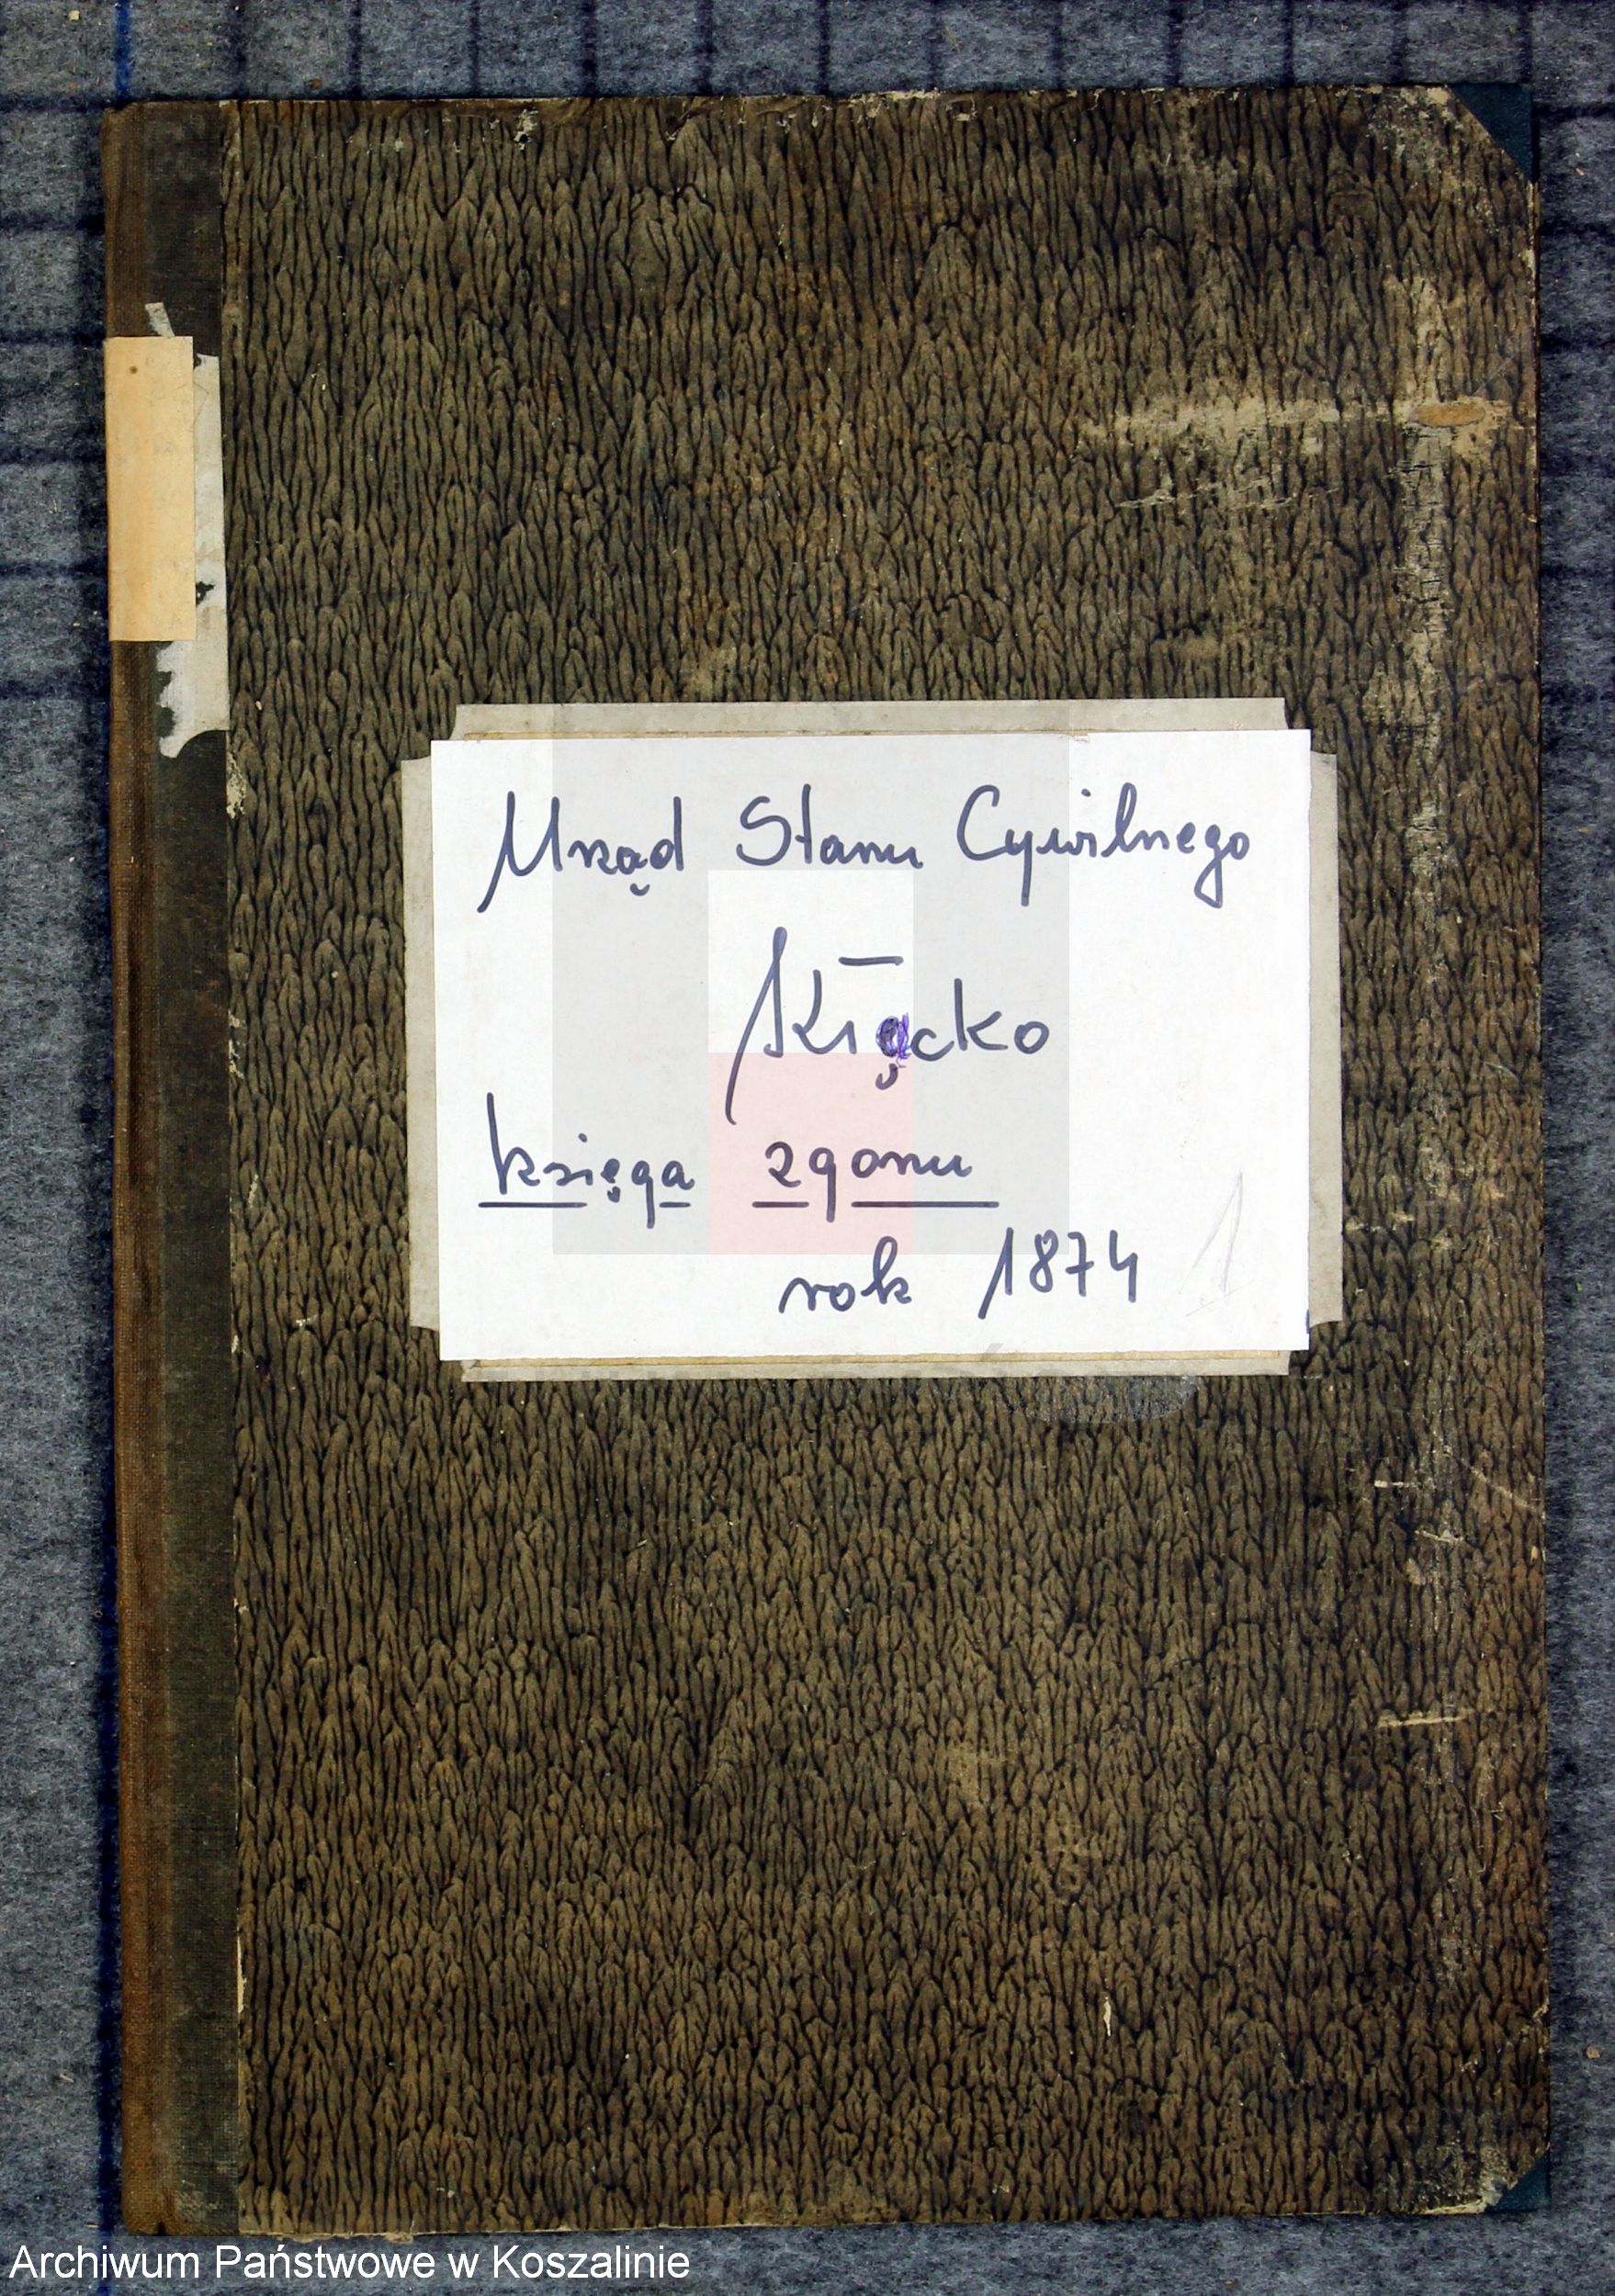 Urząd Stanu Cywilnego
Kłącko
księga zgonu
rok 1874 1
Archiwum Państwowe w Koszalinie